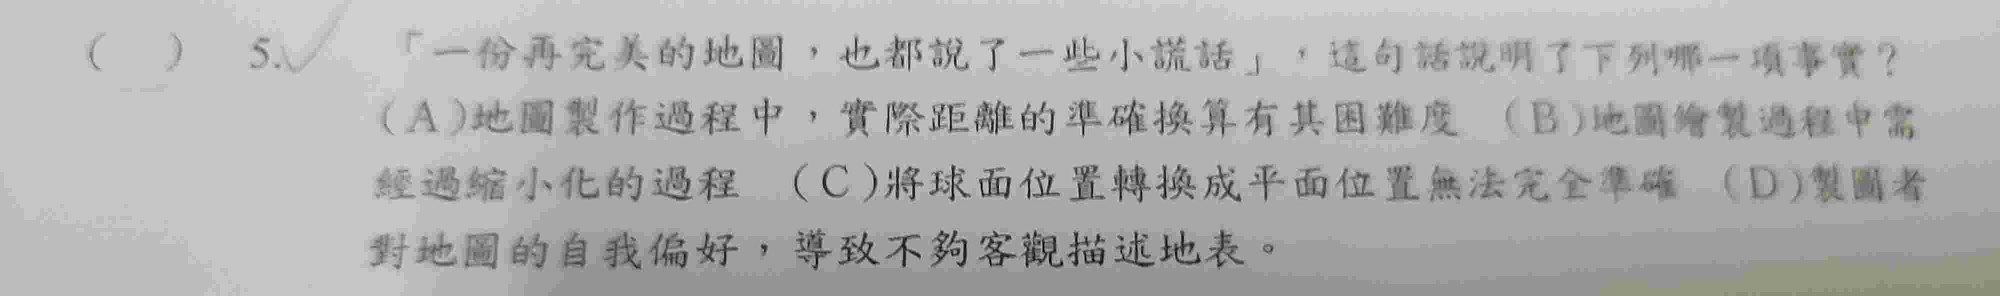 (　) 5. 「一份再完美的地圖，也都說了一些小謊話」，這句話說明了下列哪一項事實？
(A)地圖製作過程中，實際距離的準確換算有其困難度 (B)地圖繪製過程中需
經過縮小化的過程 (C)將球面位置轉換成平面位置無法完全準確 (D)製圖者
對地圖的自我偏好，導致不夠客觀描述地表。